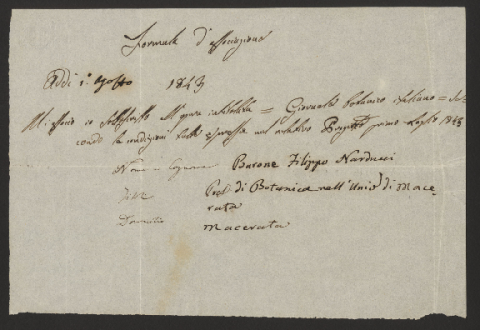 Formula d'associazione
Addì 1° Agosto 1843
M'associo io sottoscritto all'opera intitolata = Giornale botanico italiano = se-
condo le condizioni tutte espresse nel relativo Progetto primo Luglio 1843
Nome e Cognome Barone Filippo Narducci
Prof. di Botanica nell'Univ. di Mace-
rata
Domicilio Macerata